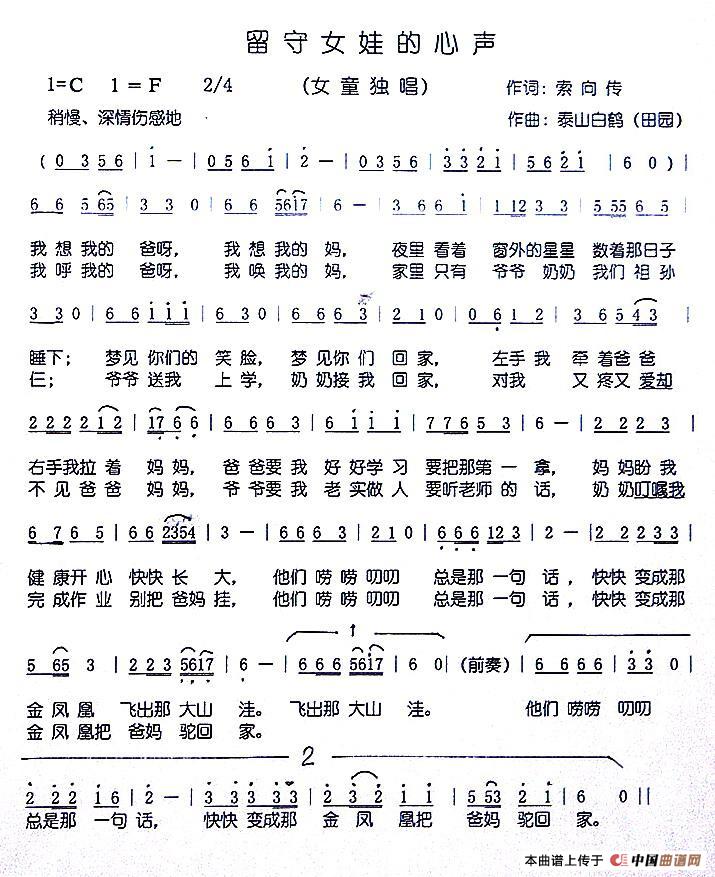 留守女娃的心声
1=C 1=F 2/4 (女童独唱) 作词：索向传
稍慢、深情伤感地 作曲：泰山白鹤（田园）
( 0 3 5 6 | 1 - | 0 5 6 1 | 2 - | 0 3 5 6 | 3 3 2 1 | 5 6 2 1 | 6 0 ) |
6 6 5 65 | 3 3 0 | 6 6 5617 | 6 - | 3 6 6 1 | 1 12 3 3 | 5 55 6 5 |
我想我的 爸呀， 我想我的 妈， 夜里看着 窗外的星星 数着那日子
我呼我的 爸呀， 我唤我的 妈， 家里只有 爷爷 奶奶 我们 祖孙
3 3 0 | 6 6 1 1 1 | 6 6 3 | 6 6 6 3 | 2 1 0 | 0 6 1 2 | 3 6 5 43 |
睡下； 梦见你们的 笑脸， 梦见你们 回家， 左手我 牵着爸爸
仨； 爷爷送我 上学， 奶奶接我 回家， 对我 又疼又爱却
2 2 2 2 12 | 17 6 6 | 6 6 6 3 | 6 1 1 1 | 7 7 6 5 3 | 6 - | 2 2 2 3 |
右手我拉着 妈妈， 爸爸要我 好好学习 要把那第一拿， 妈妈盼我
不见爸爸 妈妈， 爷爷要我 老实做人 要听老师的 话， 奶奶叮嘱我
6 7 6 5 | 6 6 2354 | 3 - | 6 6 6 3 | 2 1 0 | 6 6 6 12 3 | 2 - | 2 2 2 3 3 |
健康开心 快快长 大， 他们唠唠叨叨 总是那一句 话， 快快 变成那
完成作业 别把爸妈挂， 他们唠唠叨叨 总是那一句 话， 快快 变成那
1
5 65 3 | 2 2 3 5617 | 6 - | 6 6 6 5617 | 6 0 | (前奏) | 6 6 6 6 | 3 3 0 |
金凤凰 飞出那大山 洼。 飞出那大山 洼。 他们唠唠 叨叨
金凤凰把 爸妈 驼回 家。
2
2 2 2 1 6 | 2 - | 3 3 3 3 3 | 2 3 2 1 1 | 5 53 2 1 | 6 0 ||
总是那 一句话， 快快 变成那 金凤 凰把 爸妈 驼回 家。
本曲谱上传于 中国曲谱网